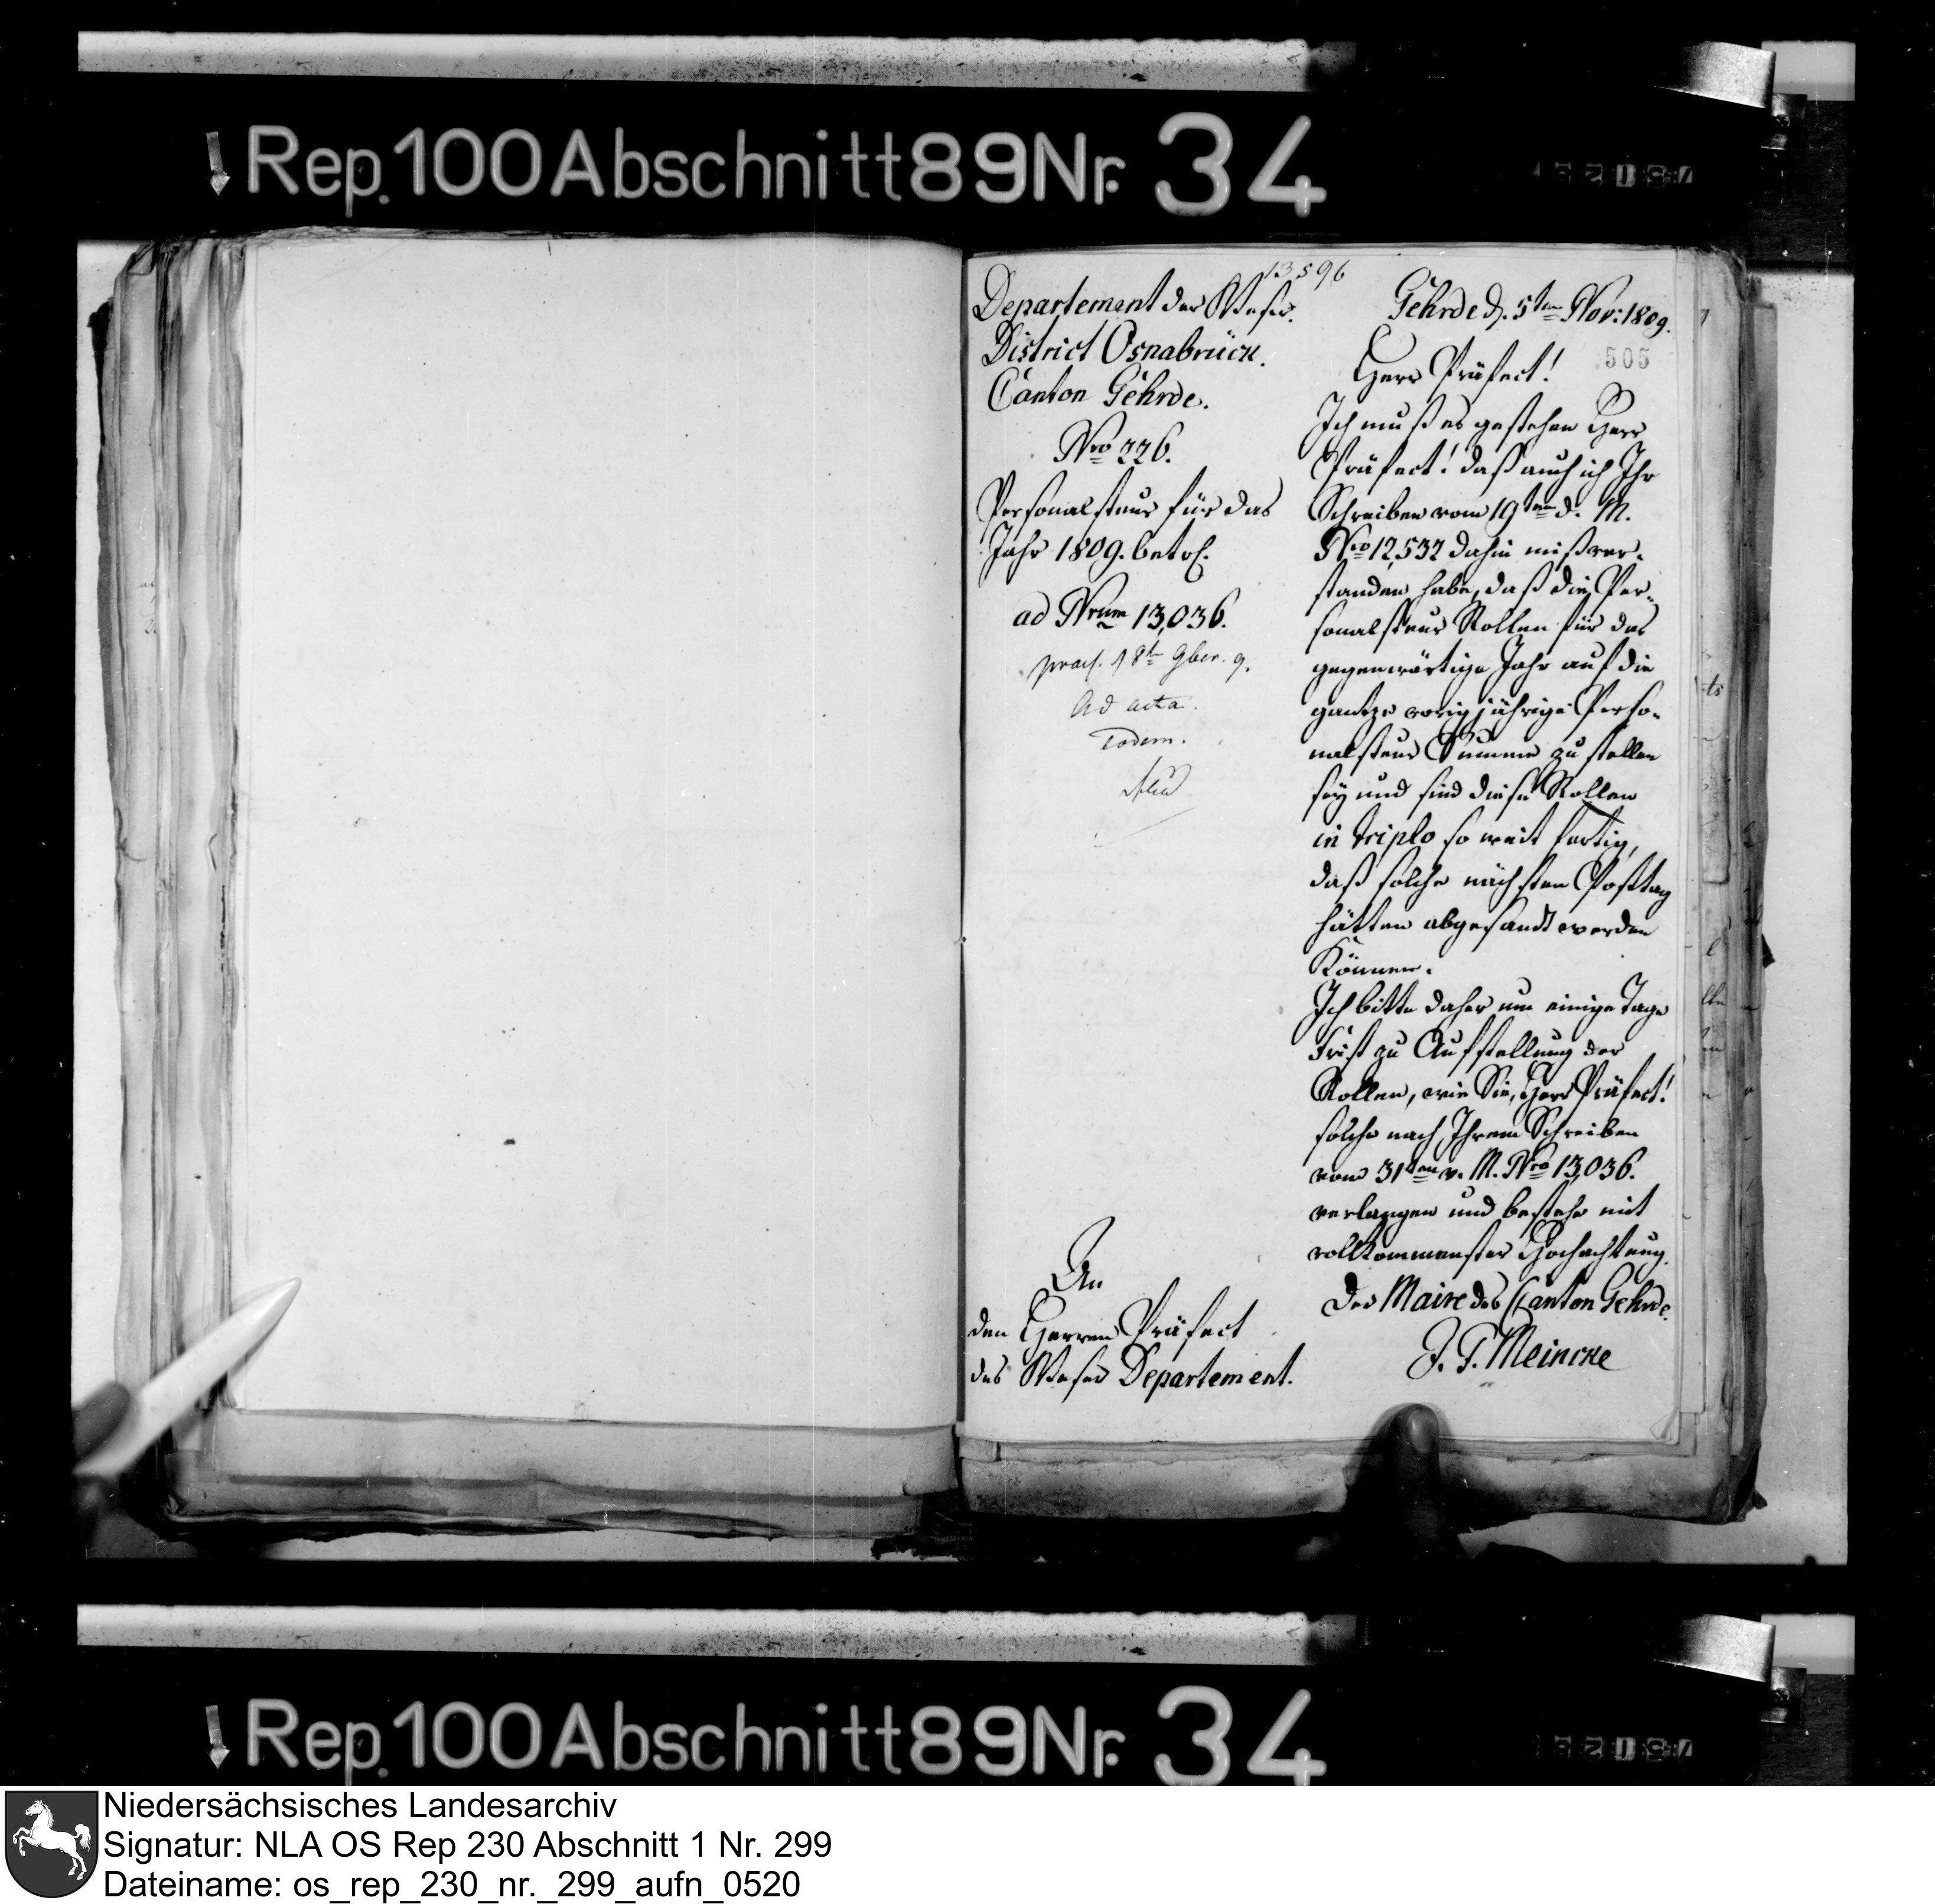 Rep. 100 Abschnitt 89 Nr. 34
13,596
Departement der Weser.
District Osnabrück.
Canton Gehrde.
Nro 226.
Personalsteuer für das
Jahr 1809. betrf.
ad Nrum 13,036.
praes. 18t 9ber. 9.
ad acta.
eodem.
Gehrde d. 5ten Nov: 1809.
505
Herr Präfect!
Ich muß es gestehen Herr
Präfect! daß auch ich Ihr
Schreiben vom 19ten d. M.
Nro 12,532 dahin mißver-
standen habe, daß die Per-
sonalsteuer Rollen für das
gegenwärtige Jahr auf die
gantze vorigjährige Perso-
nalsteuer Summe zu stellen
sey und sind diese Rollen
in triplo so weit fertig,
daß solche nächsten Posttag
hätten abgesandt werden
Können.
Ich bitte daher um einige Tage
Frist zu Aufstellung der
Rollen, wie Sie, Herr Präfect!
solche nach Ihrem Schreiben
vom 31ten v. M. Nro 13,036.
verlangen und bestehe mit
vollkommenster Hochachtung.
Der Maire des Canton Gehrde.
J. F. Meincke
An
den Herren Präfect
des Weser Departement.
Rep. 100 Abschnitt 89 Nr. 34
Niedersächsisches Landesarchiv
Signatur: NLA OS Rep 230 Abschnitt 1 Nr. 299
Dateiname: os_rep_230_nr._299_aufn_0520